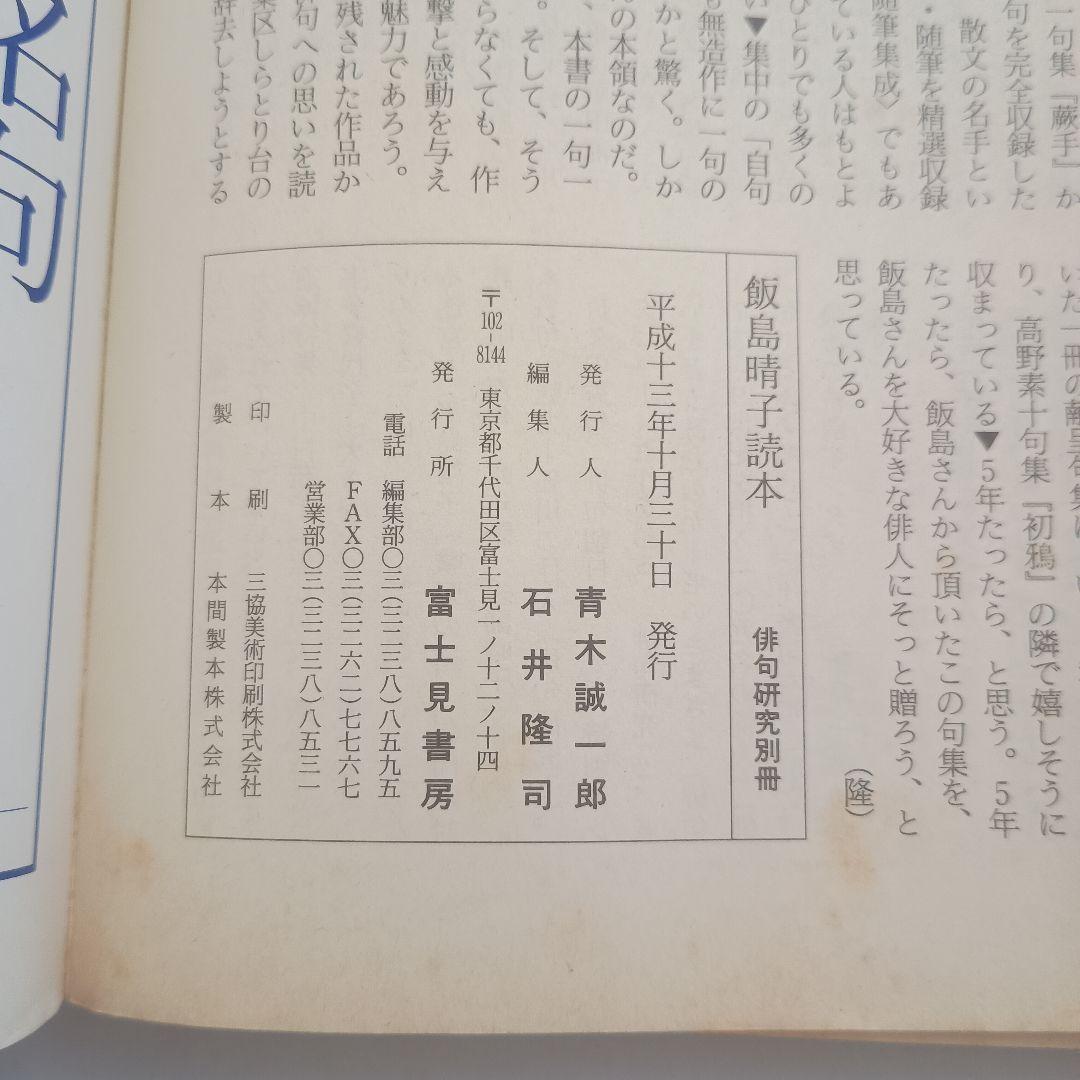 一句集『蕨手』か
句を完全収録した
散文の名手とい
・随筆を精選収録
随筆集成〉でもあ
ている人はもとよ
ひとりでも多くの
い▼集中の「自句
も無造作に一句の
かと驚く。しか
の本領なのだ。
、本書の一句一
。そして、そう
らなくても、作
撃と感動を与え
魅力であろう。
残された作品か
句への思いを読
区しらとり台の
辞去しようとする
り、高野素十句集『初鴉』の隣で嬉しそうに
収まっている▼5年たったら、と思う。5年
たったら、飯島さんから頂いたこの句集を、
飯島さんを大好きな俳人にそっと贈ろう、と
思っている。
(隆)
飯島晴子読本 俳句研究別冊
平成十三年十月三十日 発行
発行人 青木誠一郎
編集人 石井隆司
〒102-8144 東京都千代田区富士見一ノ十二ノ十四
発行所 富士見書房
電話 編集部〇三(三二三八)八五九五
FAX〇三(三二六二)七七六七
営業部〇三(三二三八)八五三一
印刷 三協美術印刷株式会社
製本 本間製本株式会社
名句